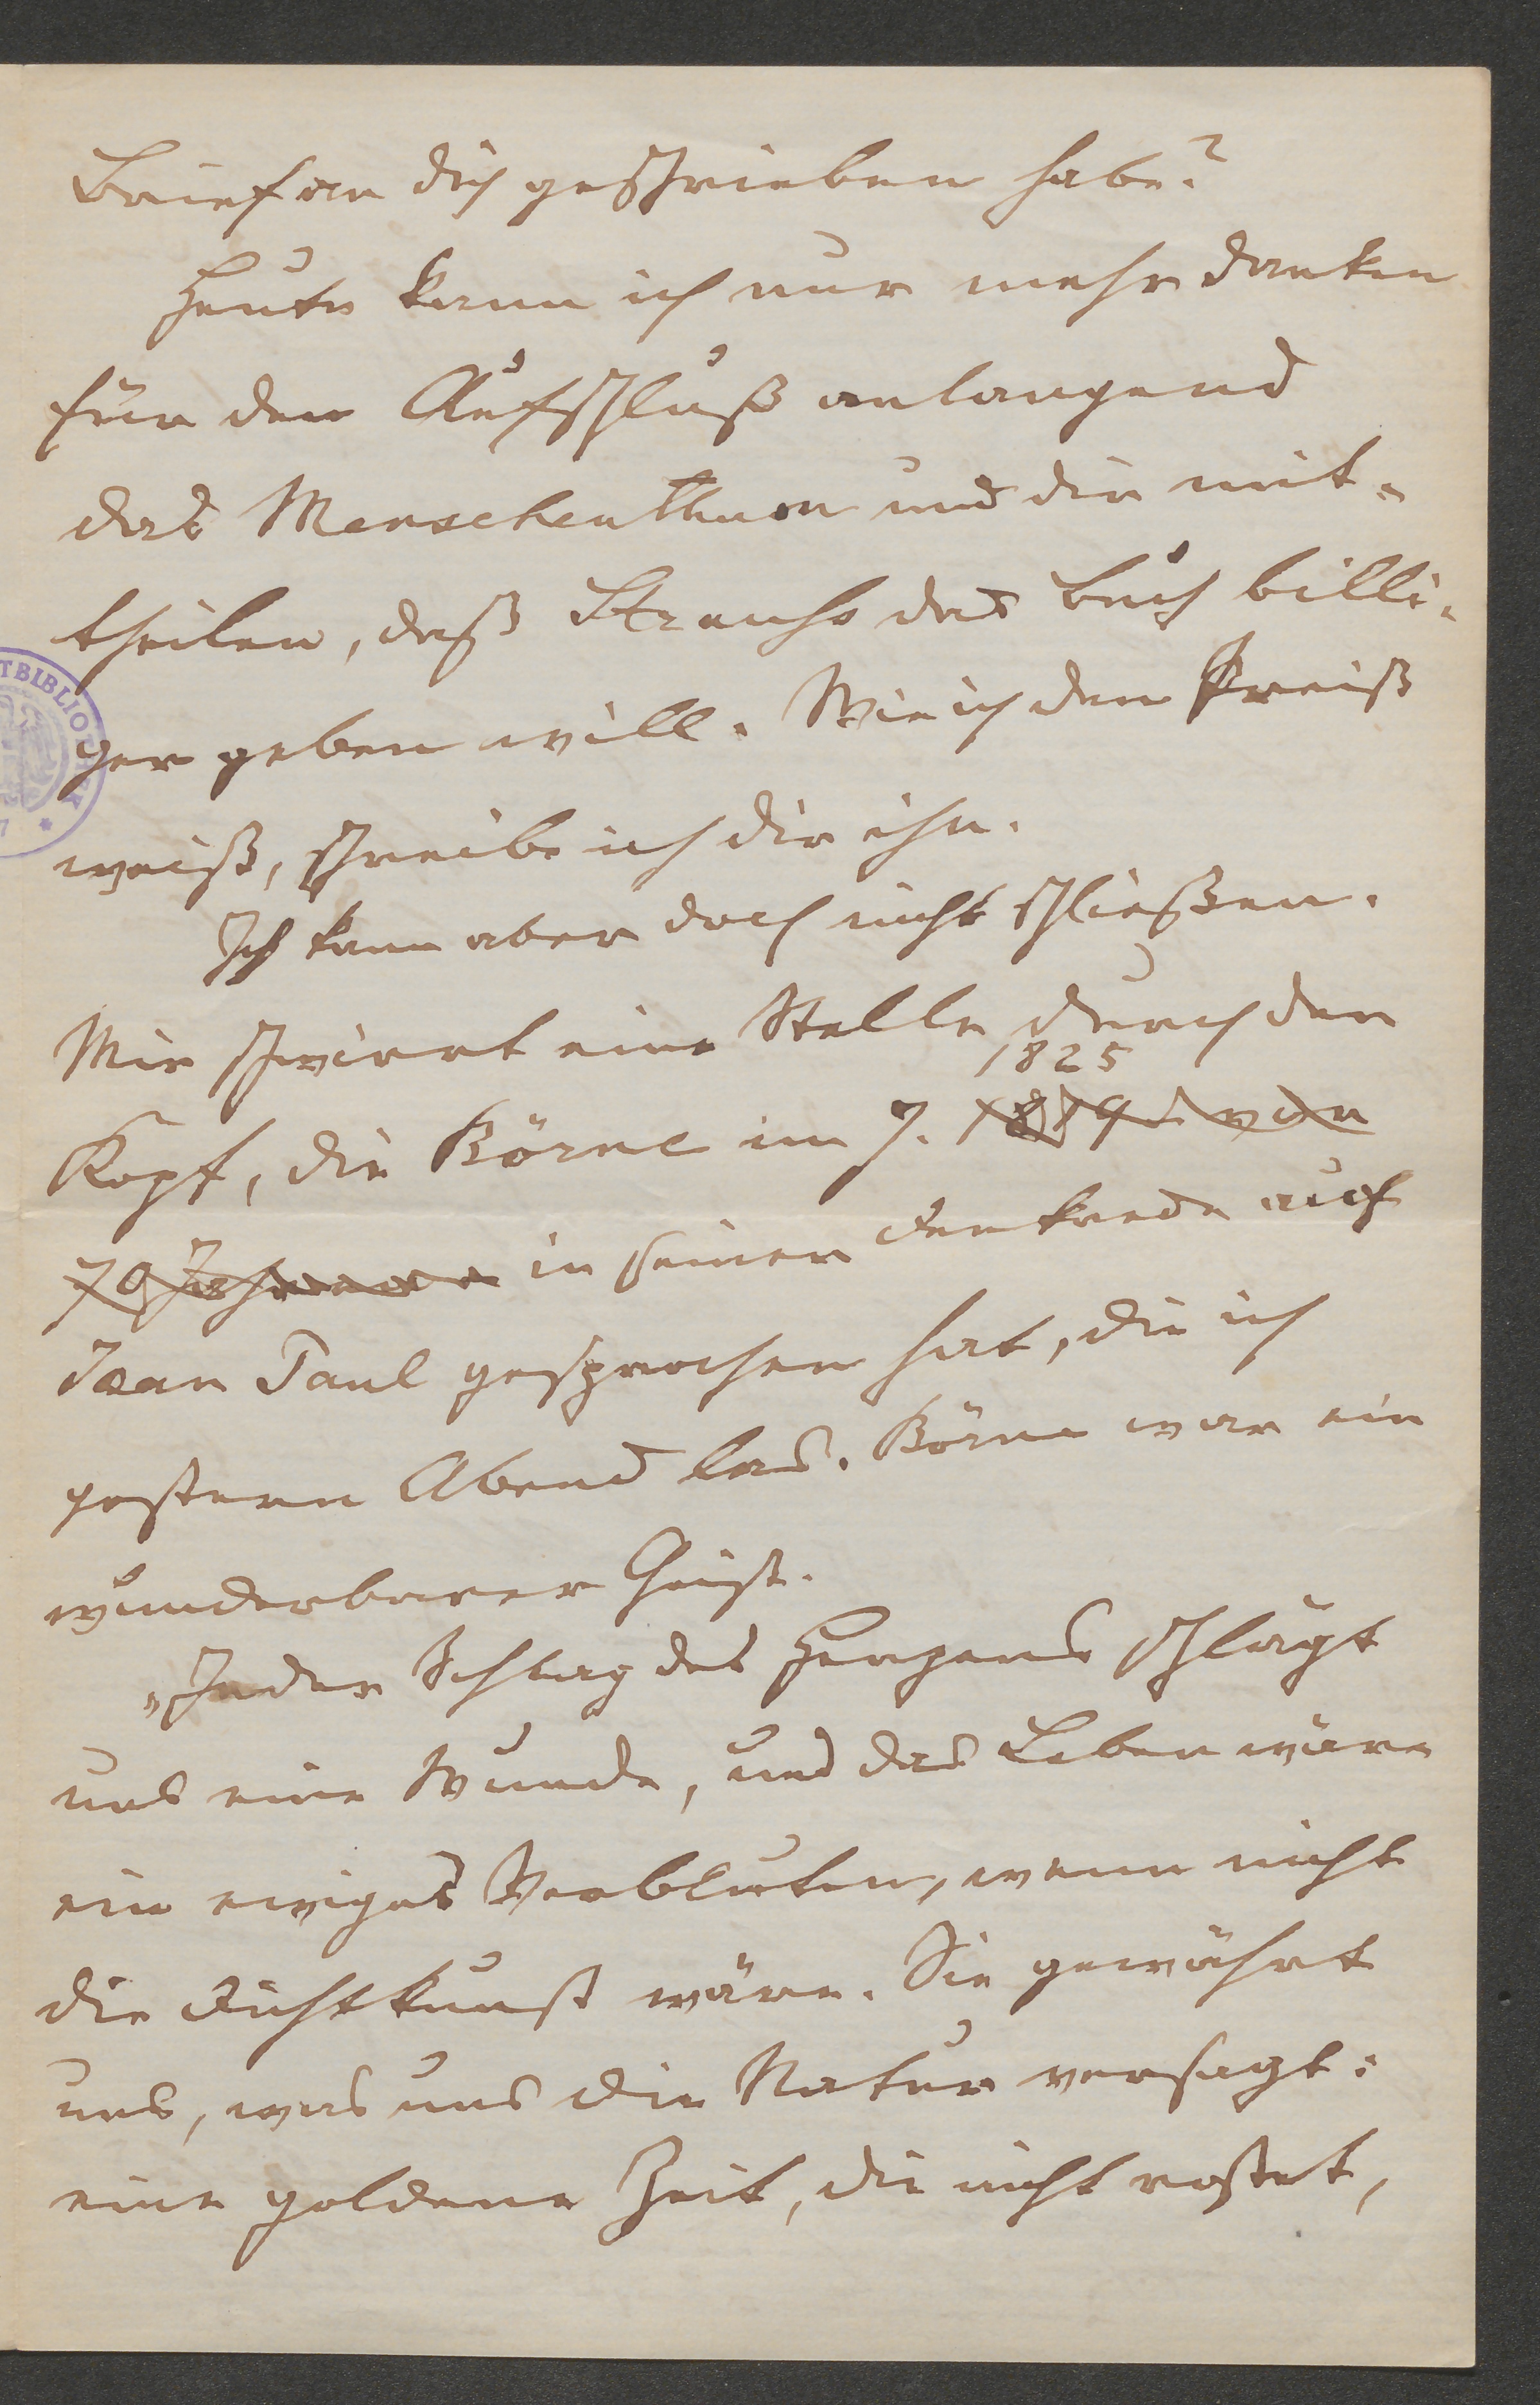 Brief an dich geschrieben habe?
Heute kann ich nur mehr danken
für den Aufschluß anlangend
das Menschenthum und dir mit-
theilen, daß Strauß das Buch billi-
ger geben will. Wie ich den Preiß
weiß, schreibe ich dir ihn.
Ich kann aber doch nicht schließen.
Mir schwirrt eine Stelle durch den
1825
Kopf, die Börne im J. 1819 von
70 Jahren in seiner Denkrede auf
Jean Paul gesprochen hat, die ich
gestern Abend las. Börne war ein
wunderbarer Geist.
„Jeder Schlag des Herzens schlägt
uns eine Wunde, und das Leben wäre
ein ewiges Verbluten, wenn nicht
die Dichtkunst wäre. Sie gewährt
uns, was uns die Natur versagt:
eine goldene Zeit, die nicht rostet,
TBIBLIOT